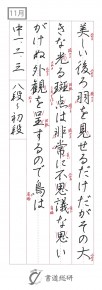 11月
美しい後羽を見せるだけだがその大
きな光る斑点は非常に不思議な思い
がけぬ外観を呈するので鳥は
中一・二・三 八段〜初段
書道総研